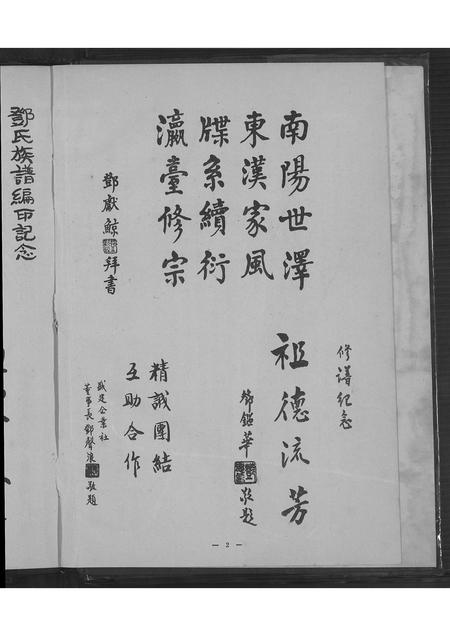 南陽世澤
東漢家風
牒系續衍
瀛臺修宗
鄧獻鯨拜書
修譜紀念
祖德流芳
鄧鎰華 敬題
精誠團結
互助合作
企業社
董事長鄧聲浪 敬題
鄧氏族譜編印記念
— 2 —